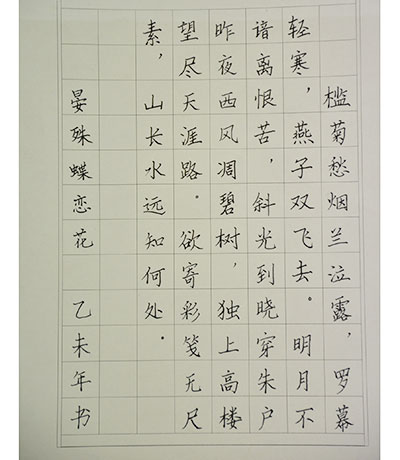 槛菊愁烟兰泣露，罗幕
轻寒，燕子双飞去。明月不
谙离恨苦，斜光到晓穿朱户
昨夜西风凋碧树，独上高楼
望尽天涯路。欲寄彩笺无尺
素，山长水远知何处。
晏殊蝶恋花 乙未年书